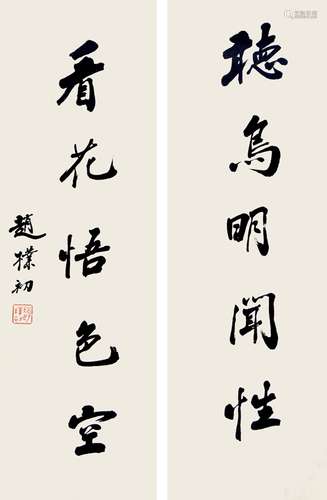 聽鳥明聞性
看花悟色空
趙樸初